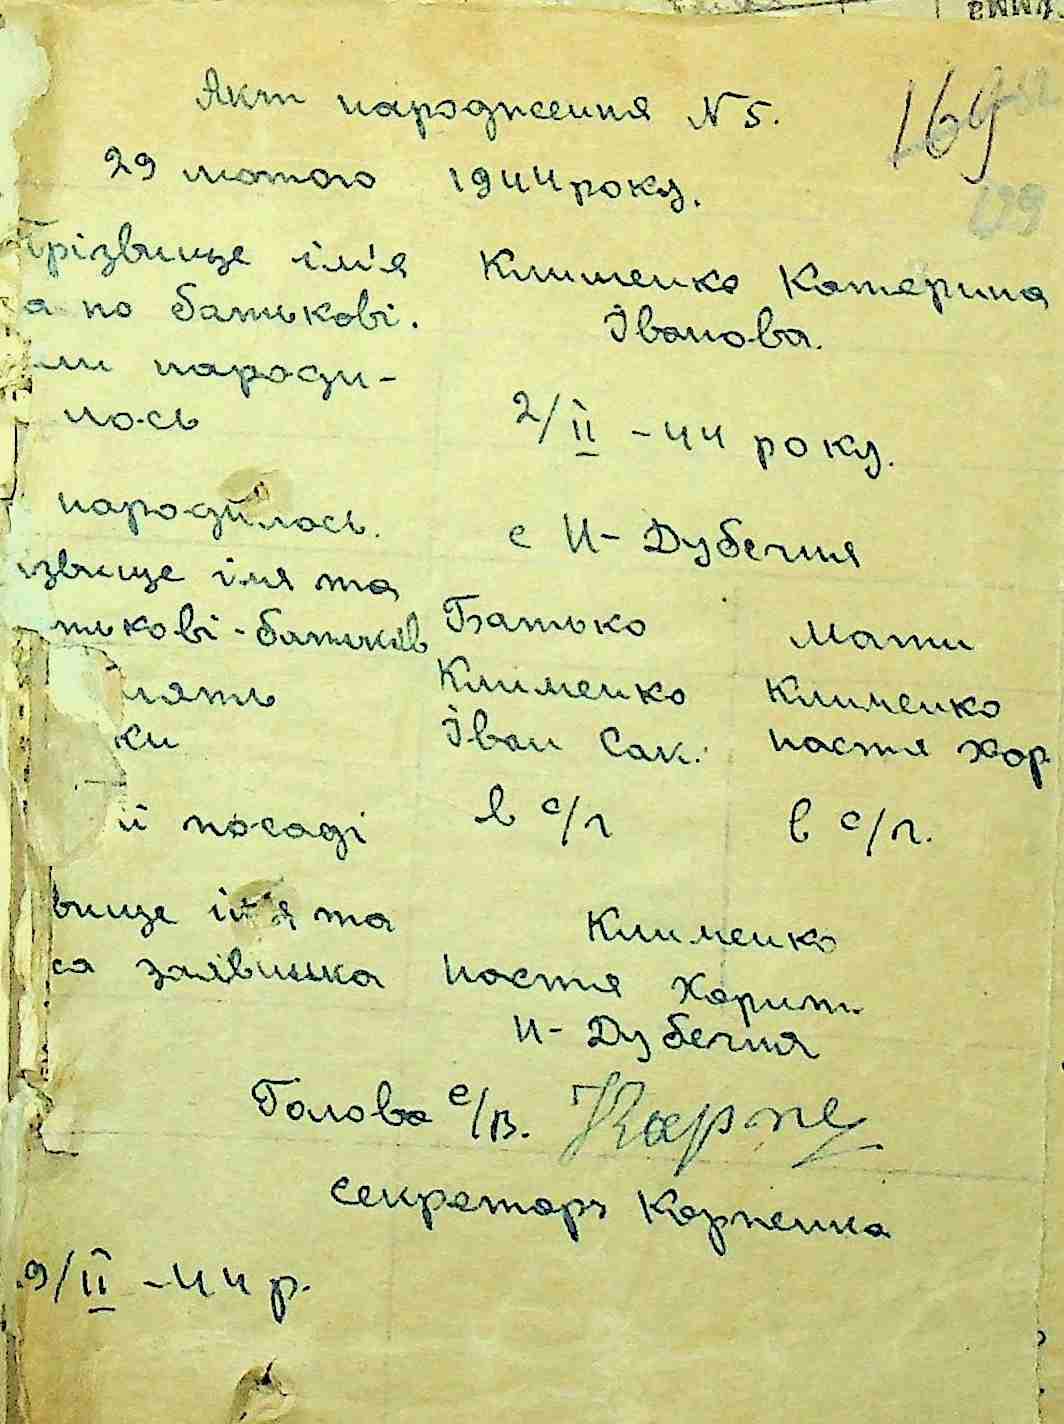 Акт народження N 5.
169
29 лютого 1944 року.
129
Прізвище ім'я Клименко Катерина
а по батькові. Іванова.
ли народи-
лось 2/II -44 року.
народилось. с Н- Дубечня
ізвище імя та
тькові - батьків Батько Мати
Клименко Клименко
ки Іван Сак. Настя Хар.
й посаді в с/г в с/г.
вище ім'я та Клименко
са заявника Настя Харит.
Н- Дубечня
Голова с/в. Карпе
Секретарь Карпенка
.9/II -44 р.